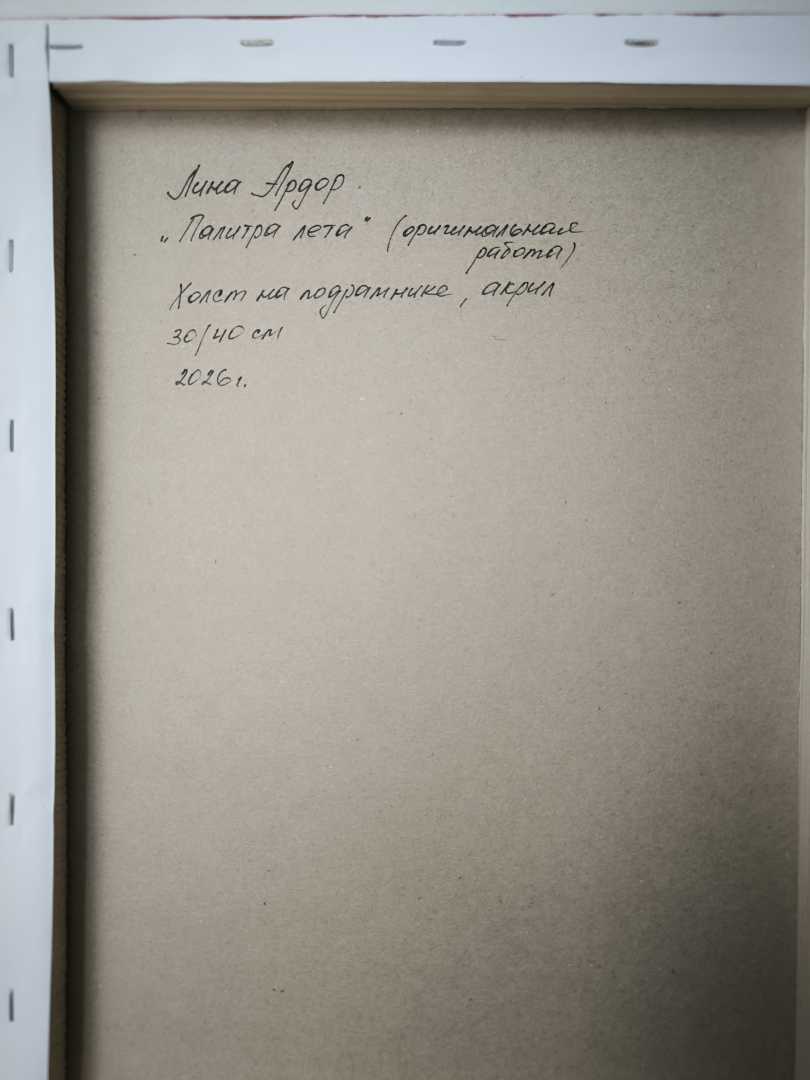 Лина Ардор.
„Палитра лета" (оригинальная
работа)
Холст на подрамнике, акрил
30/40 см
2026 г.